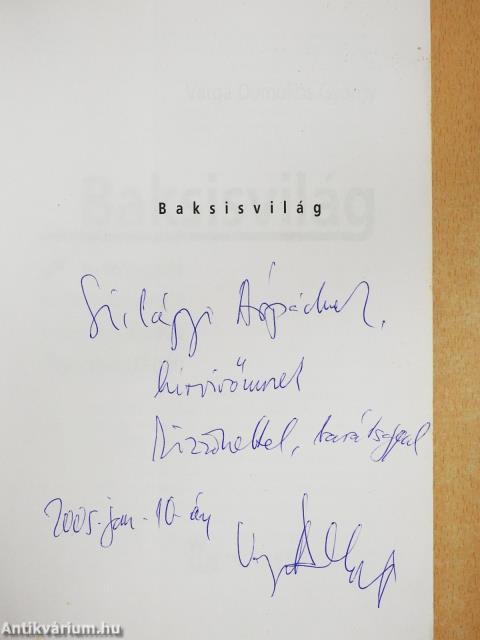 Varga Domokos György
Baksisvilág
Baksisvilág
Szilágyi Árpádnak,
hírvivőmnek
köszönettel, barátsággal
2005. jan. 10-én
Antikvárium.hu